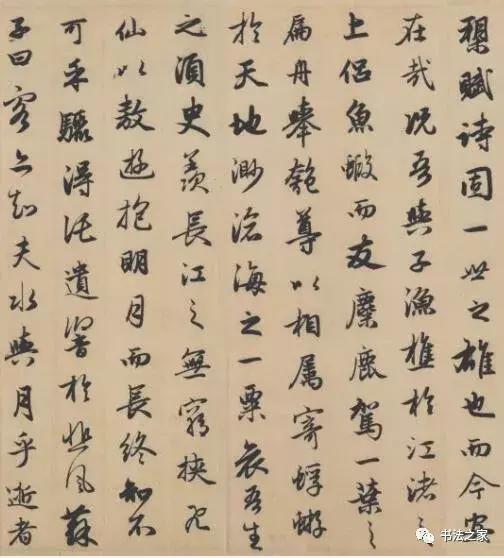 槊賦詩固一世之雄也而今安
在哉况吾與子漁樵於江渚之
上侶魚蝦而友麋鹿駕一葉之
扁舟舉匏尊以相属寄蜉蝣
於天地渺滄海之一粟哀吾生
之須臾羨長江之無窮挾飛
仙以遨遊抱明月而長終知不
可乎驟得託遺響於悲風蘇
子曰客亦知夫水與月乎逝者
书法之家